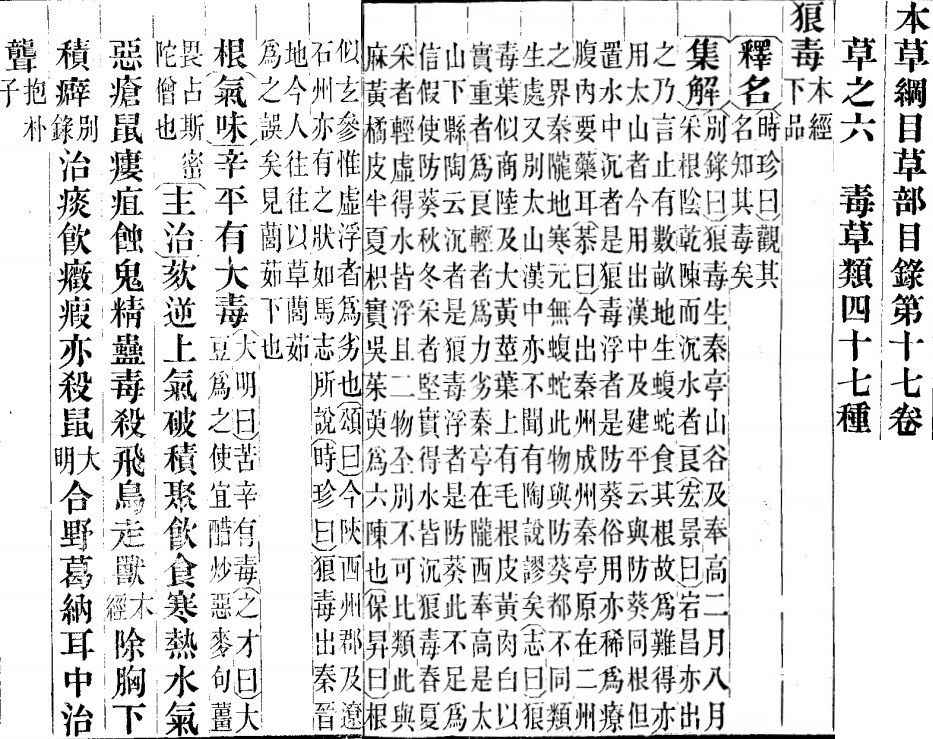 本草綱目草部目錄第十七卷
草之六　毒草類四十七種
狼毒本經
下品
釋名時珍曰觀其
名知其毒矣
集解別錄曰狼毒生秦亭山谷及奉高二月八月
采根陰乾陳而沉水者良宏景曰宕昌亦出
之乃言止有數畝地生蝮蛇食其根故爲難得亦
用太山者今用出漢中及建平云與防葵同根但
置水中沉者是狼毒浮者是防葵俗用亦稀爲療
腹內要藥耳恭曰今出秦州成州秦亭原在二州
之界秦隴地寒元無蝮蛇此物與防葵都不同類
生處又別太山漢中亦不聞有陶說謬矣志曰狼
毒葉似商陸及大黃莖葉上有毛根皮黃肉白以
實重者爲良輕者爲力劣秦亭在隴西奉高是太
山下縣陶云沉者是狼毒浮者是防葵此不足爲
信假使防葵秋冬采者堅實得水皆沉狼毒春夏
采者輕虛得水皆浮且二物全別不可比類此與
麻黃橘皮半夏枳實吳茱萸爲六陳也保昇曰根
似玄參惟虛浮者爲劣也頌曰今陝西州郡及遼
石州亦有之狀如馬志所說時珍曰狼毒出秦晉
地今人往往以草䕡茹
爲之誤矣見䕡茹下也
根氣味辛平有大毒大明曰苦辛有毒之才曰大
豆爲之使宜醋炒惡麥句薑
畏占斯密
陀僧也主治欬逆上氣破積聚飲食寒熱水氣
惡瘡鼠瘻疽蝕鬼精蠱毒殺飛鳥走獸本經除胸下
積癖別錄治痰飲癥瘕亦殺鼠大明合野葛納耳中治
聾抱朴子